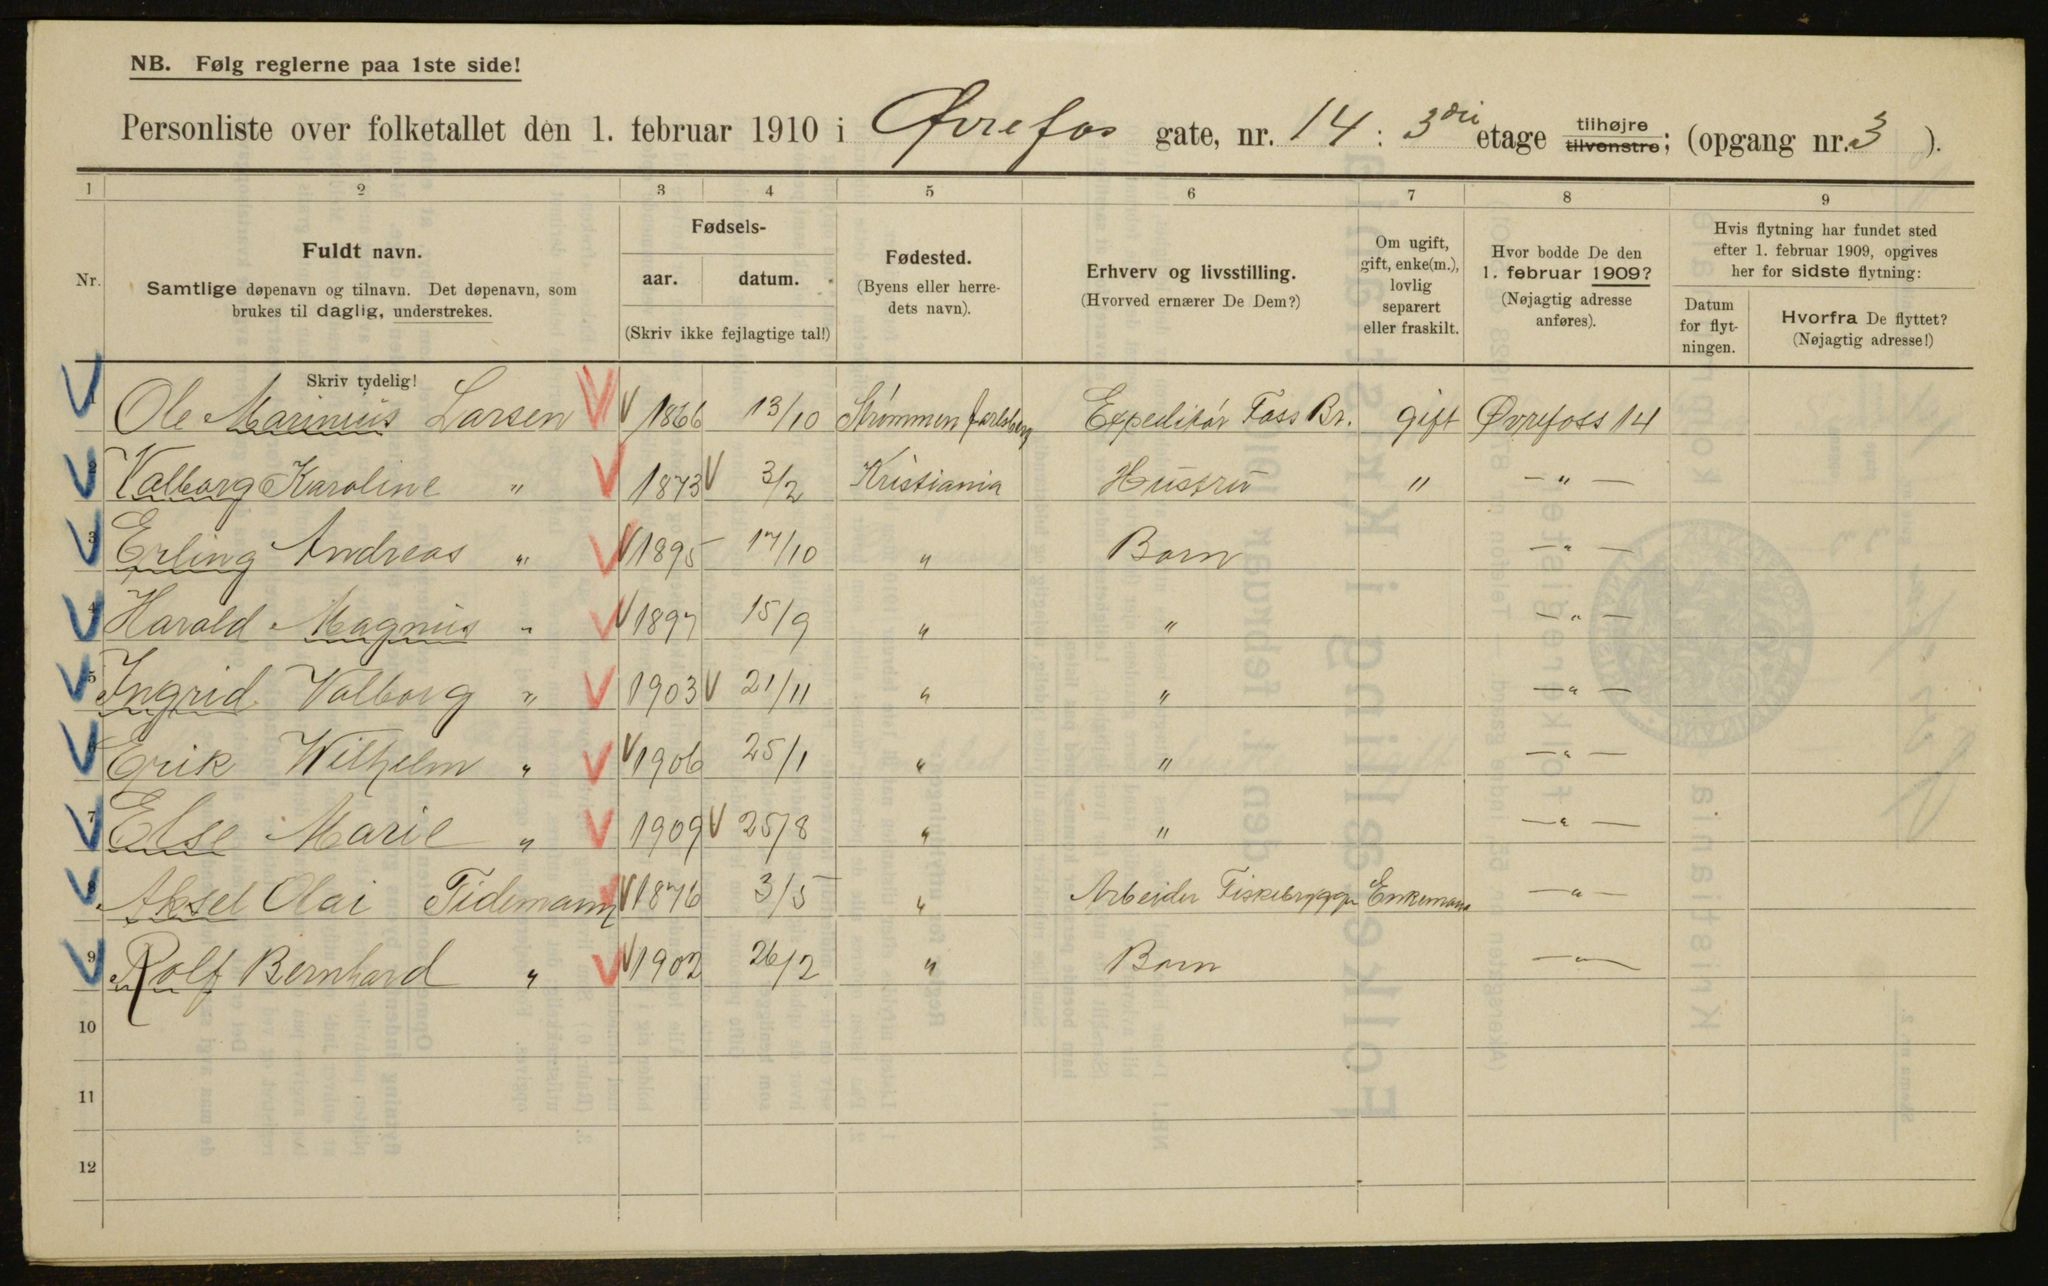 NB. Følg reglerne paa 1ste side!
Personliste over folketallet den 1. februar 1910 i Øvrefos gate, nr. 14 : 3die etage tilhøjre tilvenstre; (opgang nr. 3 ).
1 2 3 4 5 6 7 8 9
Nr. Fuldt navn. Samtlige døpenavn og tilnavn. Det døpenavn, som brukes til daglig, understrekes. Fødsels- aar. datum. (Skriv ikke fejlagtige tal!) Fødested. (Byens eller herredets navn). Erhverv og livsstilling. (Hvorved ernærer De Dem?) Om ugift, gift, enke(m.), lovlig separert eller fraskilt. Hvor bodde De den 1. februar 1909? (Nøjagtig adresse anføres). Hvis flytning har fundet sted efter 1. februar 1909, opgives her for sidste flytning: Datum for flytningen. Hvorfra De flyttet? (Nøjagtig adresse!)
Skriv tydelig!
1 Ole Marinius Larsen 1866 13/10 Strømmen Jarlsberg Expeditør Foss Br. gift Øvrefoss 14
2 Valborg Karoline " 1873 3/2 Kristiania Hustru " — " —
3 Erling Andreas " 1895 17/10 " Barn — " —
4 Harald Magnus " 1897 15/9 " " — " —
5 Ingrid Valborg " 1903 21/11 " " — " —
6 Erik Wilhelm " 1906 25/1 " " — " —
7 Else Marie " 1909 25/8 " " — " —
8 Aksel Olai Tidemann 1876 3/5 " Arbeider Fiskebrygge Enkemann — " —
9 Rolf Bernhard " 1902 26/2 " Barn — " —
10
11
12